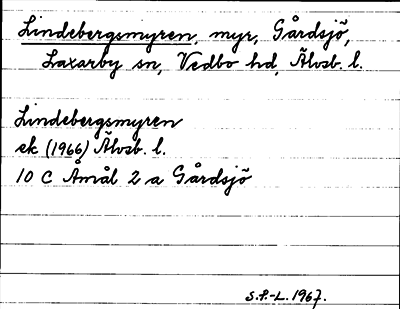 Lindebergsmyren, myr, Gårdsjö,
Laxarby sn, Vedbo hd, Älvsb. l.
Lindebergsmyren
ek (1966) Älvsb. l.
10 C Åmål 2 a Gårdsjö
S.F.-L. 1967.